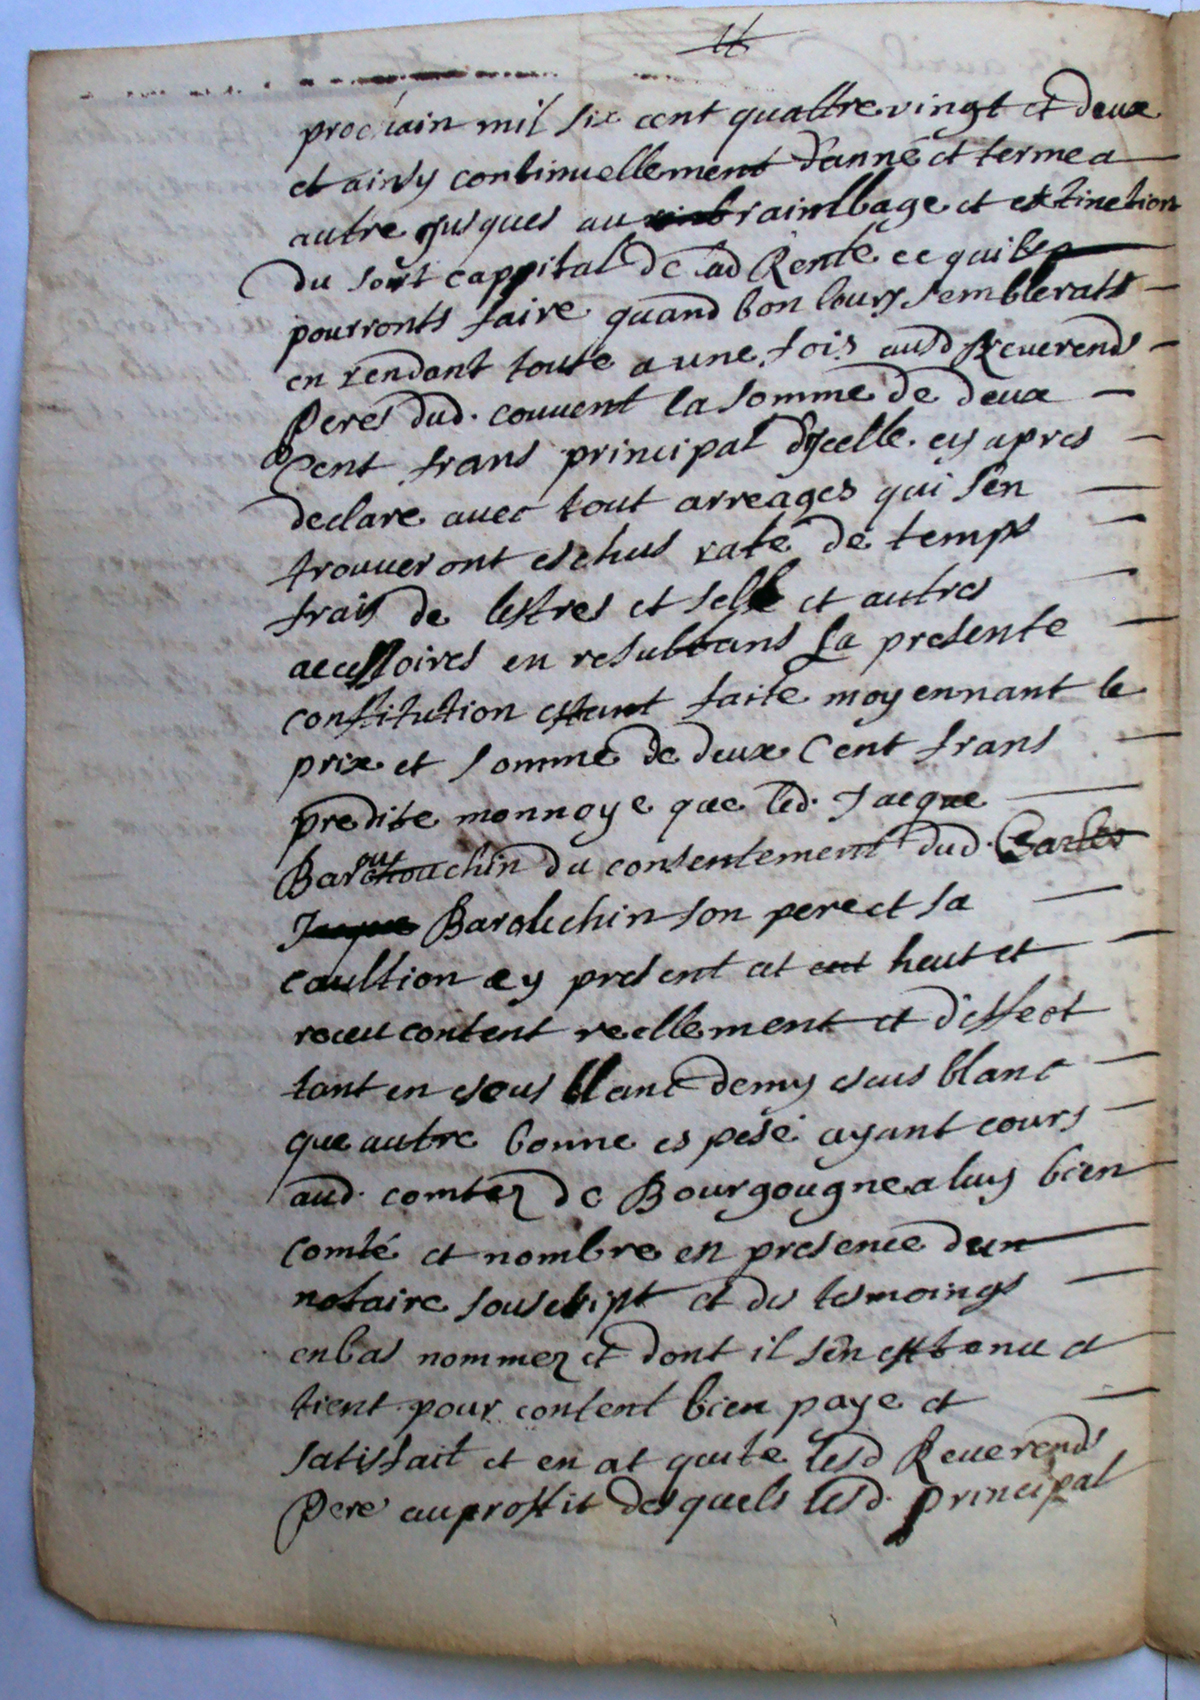 prochain mil six cent quattre vingt et deux
et ainsy continuellement d'anné et terme a
autre jusques au raimbage et extinction
du sort cappital de lad Rente ce quils
pourronts faire quand bon leurs semblerats
en rendant toute a une fois ausd Reuerends
Peres dud. couuent la somme de deux
Cent frans principal d'ycelle. cy apres
declare auec tout arreages qui s'en
trouueront eschus rate de temps
frais de lestres et selle et autres
accessoires en resultans La presente
constitution estant faite moyennant le
prix et somme de deux Cent frans
predite monnoye que led. Jacque
Barouchin du consentement dud. Charles
Barouchin son pere et sa
caultion cy present at heut et
receu content reellement et d'effect
tant en escus blanc demy escus blanc
que autre bonne espese ayant cours
aud. comtez de Bourgougne a luy bien
comté et nombre en presence d'un
notaire souscript et des tesmoings
enbas nommez et dont il s'en est tenu et
tient pour content bien paye et
satisfait et en at quite lesd Reuerends
Pere au proffit desquels lesd. principal